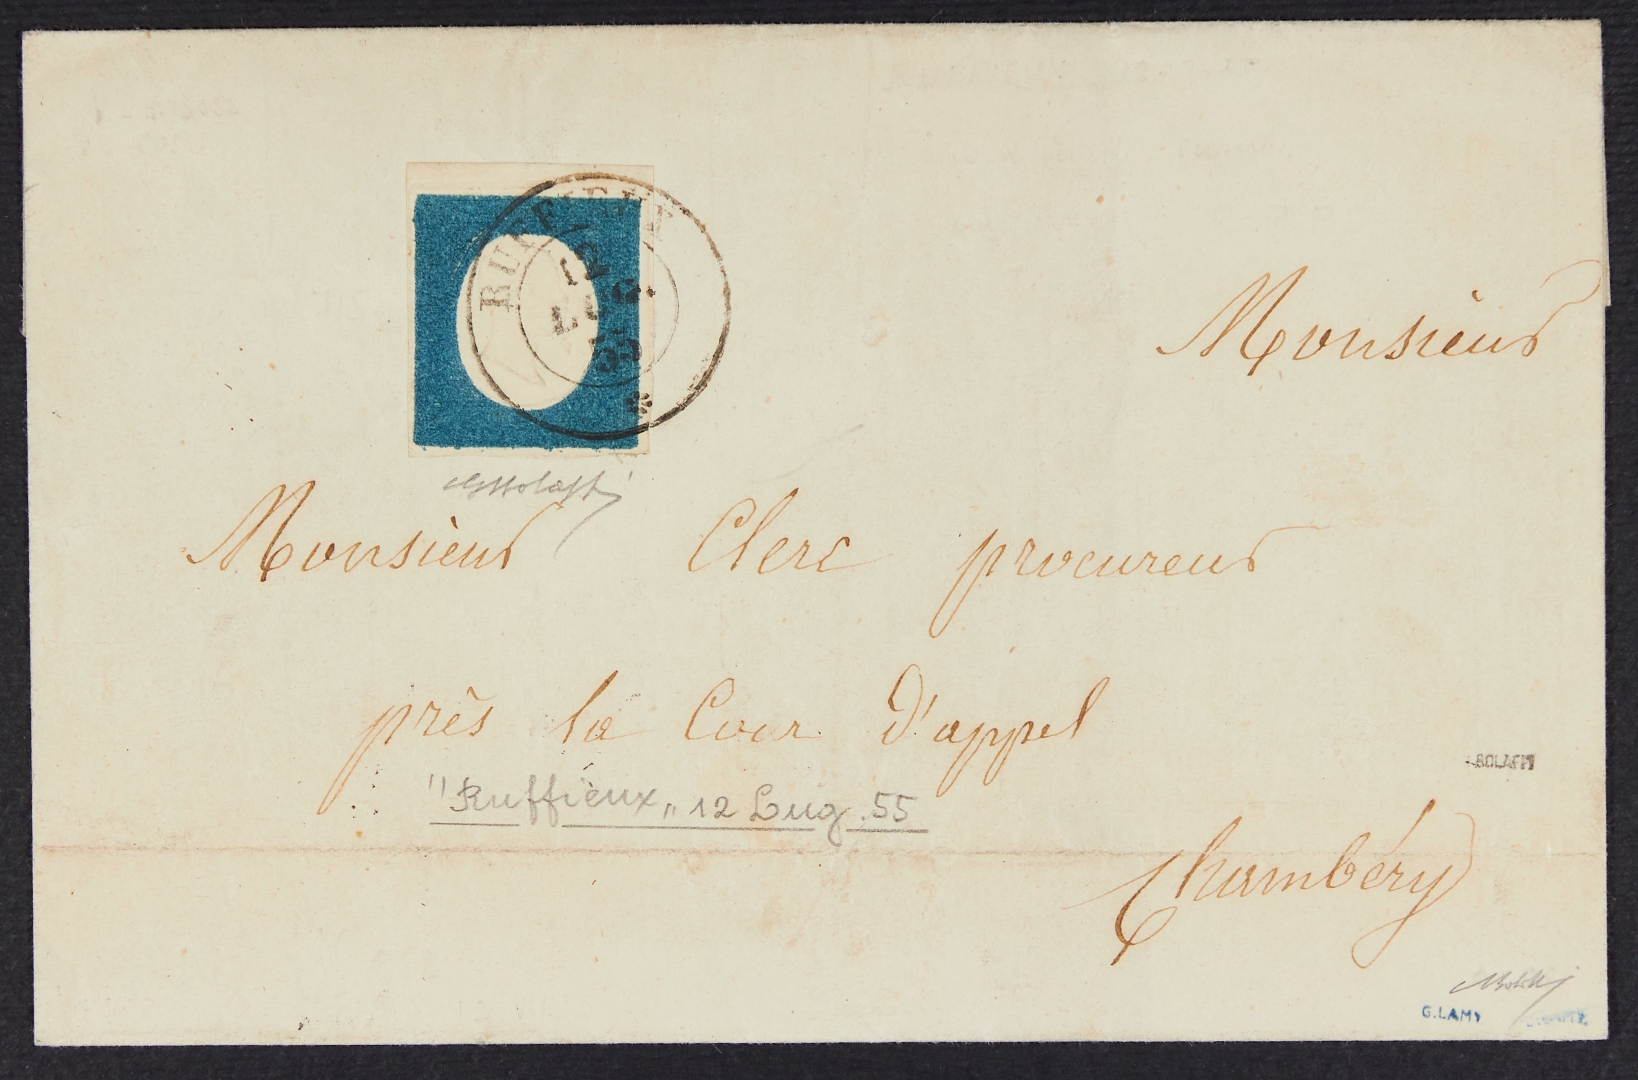 RUFFIEUX
12
LUG.
55
Monsieur
Monsieur Clerc procureur
près la Cour D'appel
"Ruffieux„ 12 Lug. 55
BOLAFFI
Chambéry
G.LAMY